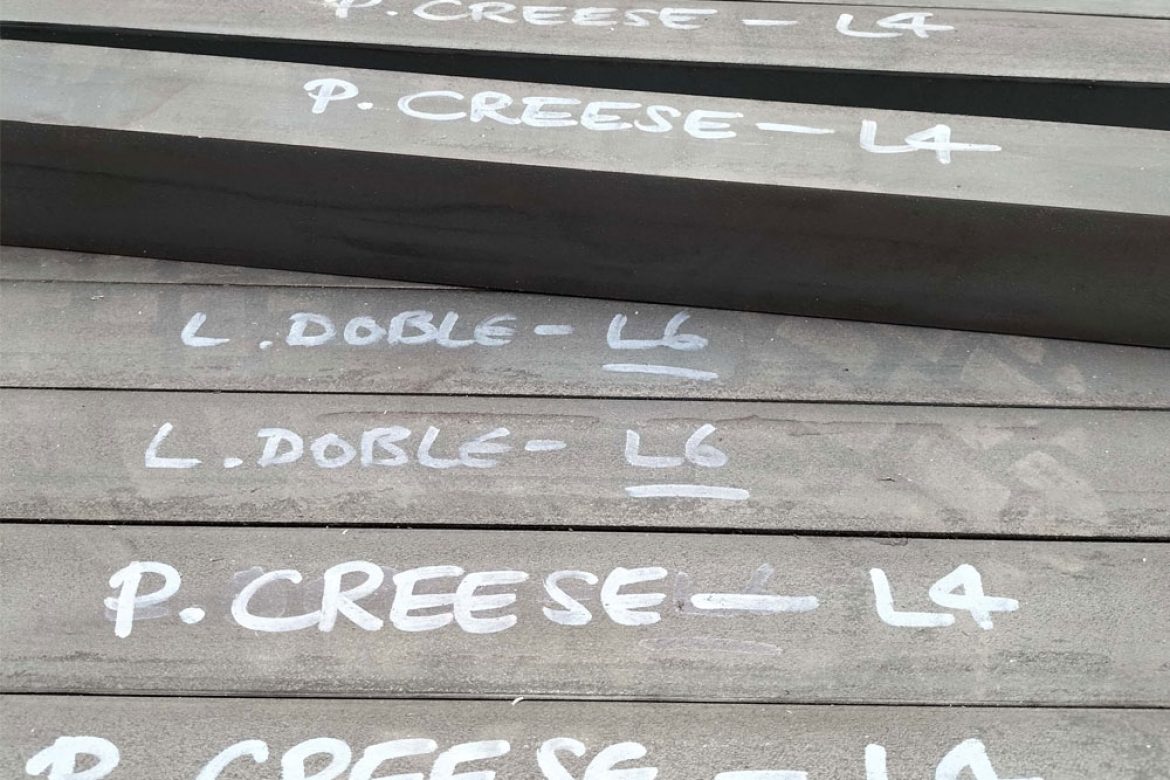 P. CREESE - L4
P. CREESE - L4
L. DOBLE - L6
L. DOBLE - L6
P. CREESE - L4
P. CREESE - L4